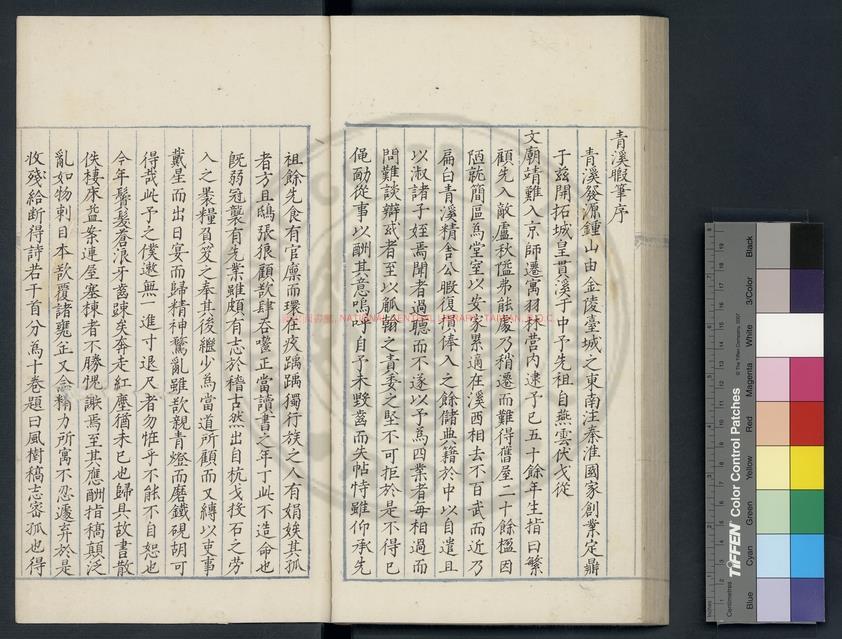 青溪暇筆序
青溪發源鍾山由金陵臺城之東南注秦淮國家創業定鼎
于兹開拓城皇貫溪于中予先祖自燕雲伏戈從
文廟靖難入京師遷寓羽林營内逮予已五十餘年生指日繁
顧先人敝廬秋隘弗能處乃稍遷而難得舊屋二十餘楹因
陋就簡區為堂室以安家累適在溪西相去不百武而近乃
扁曰青溪精舍公暇復損俸入之餘儲典籍於中以自遣且
以淑諸子姪焉聞者過聽而不遂以予為四業者每相過而
問難談辯或者至以觚翰之責委之堅不可拒於是不得已
黽勔從事以酬其意嗚呼自予未毀齒而失怙恃雖仰承先
祖餘先食有官廩而環在疚踽踽獨行族之人有娟嫉其孤
者方且鴟張狼顧欲肆吞噬正當讀書之年丁此不造命也
既弱冠襲有先業雖頗有志於稽古然出自杭戈投石之劳
入之褁糧負笈之奉其後繼少為當道所顧而又縛以吏事
戴星而出日宴而歸精神驚亂雖欲親青燈而磨鐵硯胡可
得哉此予之僕遬無一進寸退尺者勿恠乎不能不自恕也
今年鬢髮蒼浪牙齒踈矣奔走紅塵猶未已也歸具故書散
佚棲床益案連屋塞棟者不勝愧謝焉至其應酬指稿顛泛
亂如物刺日本欲覆諸甕缶又念精力所寓不忍遽弃於是
收殘給断得詩若干首分為十卷題曰風樹稿志密孤也得